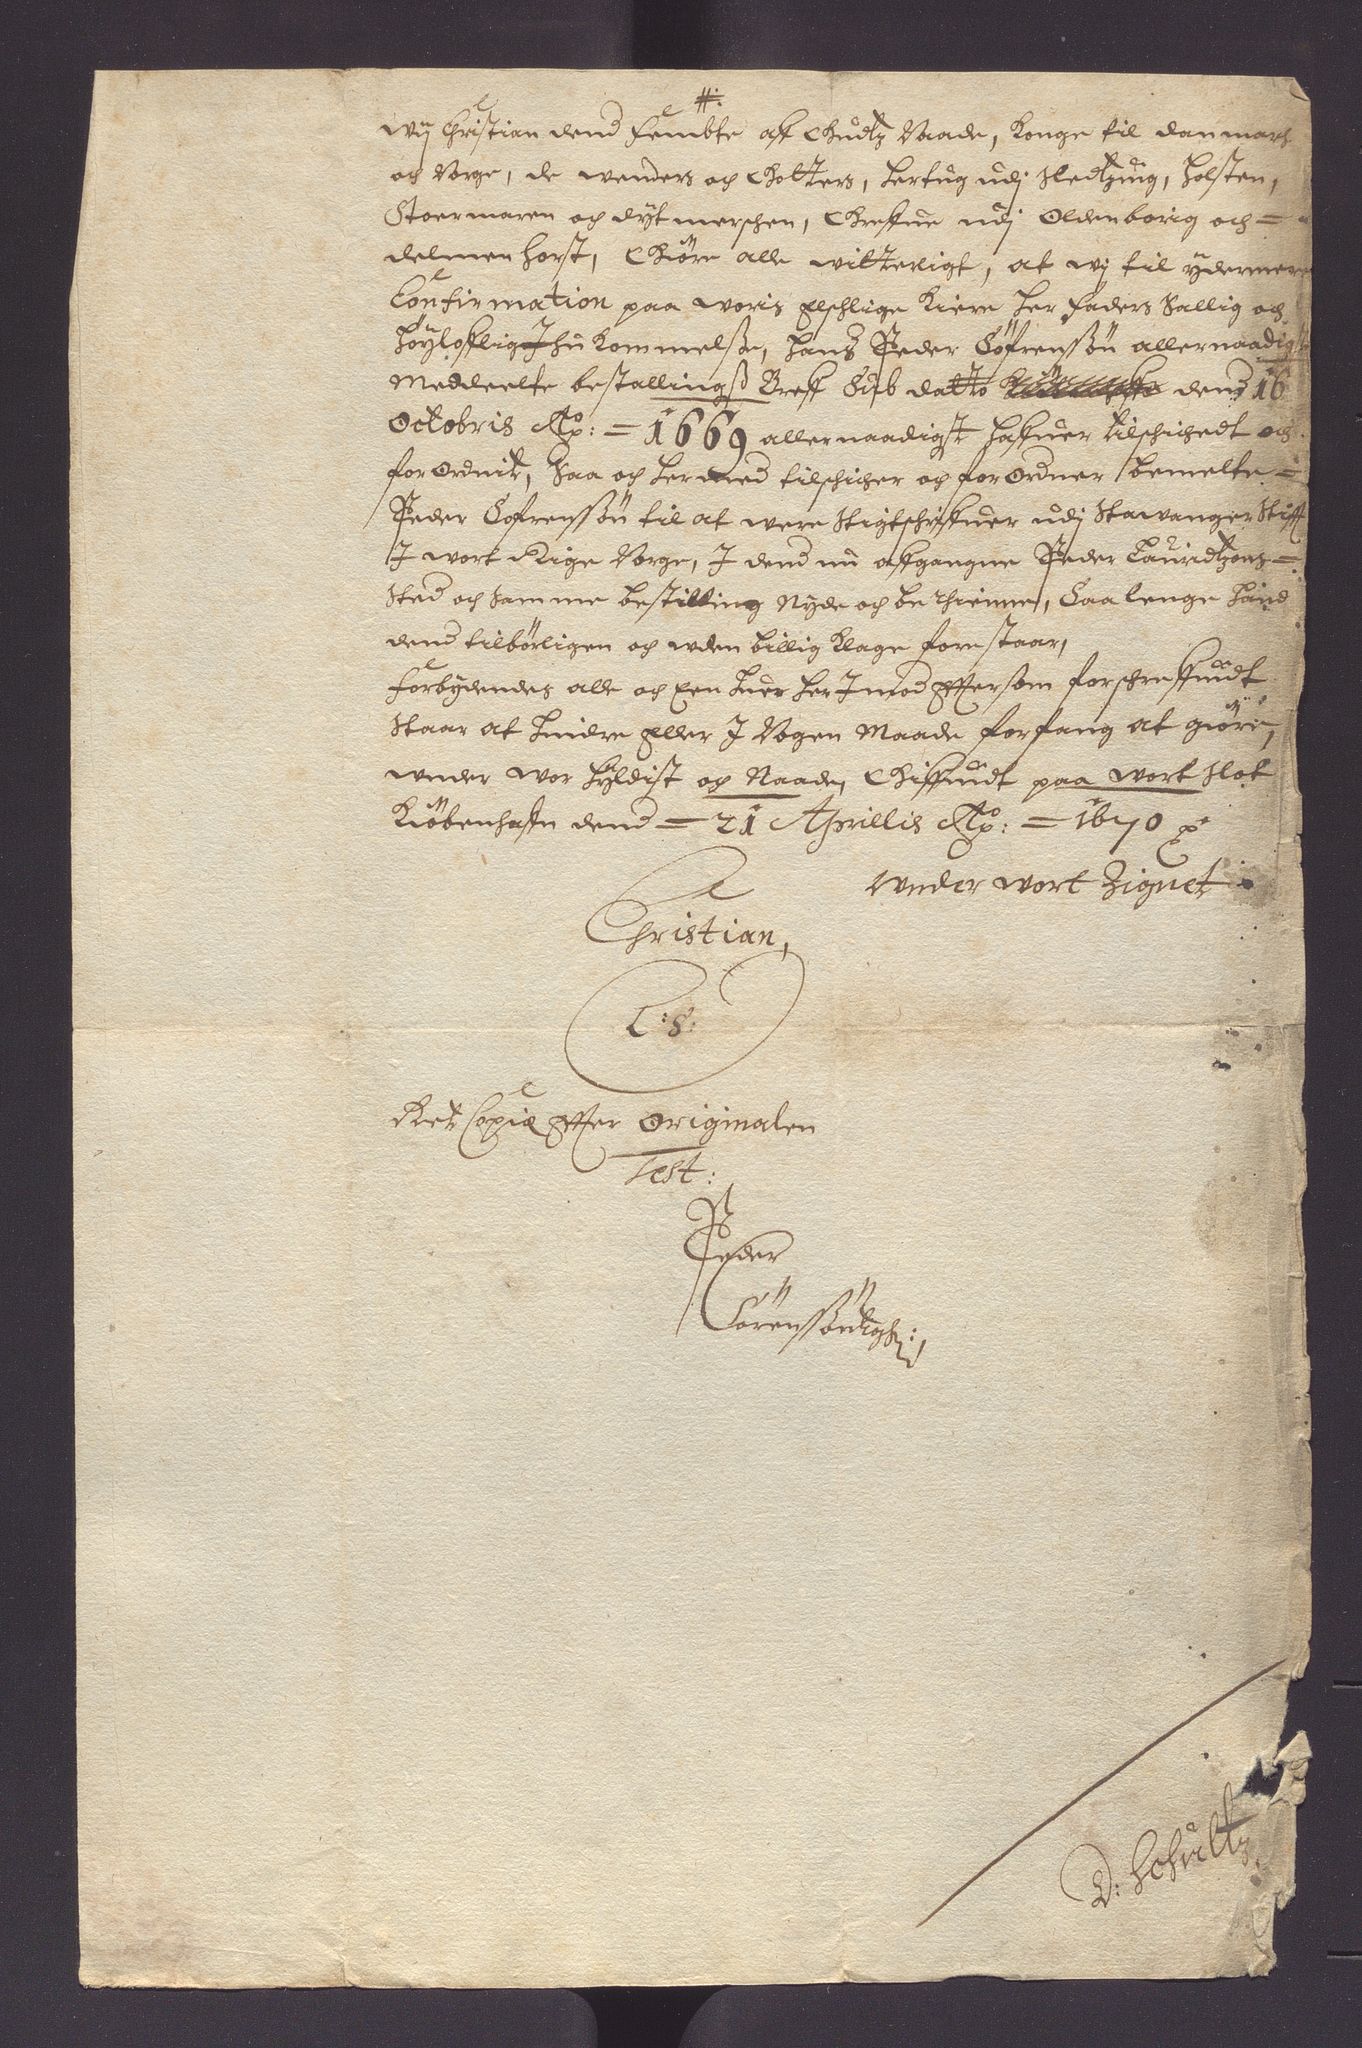 #:
Wij Christian dend Fembte aff Gudtz Naade, Konge til Danmarch
och Norge, de Wenders och Gotters, Hertug udj Sledtzuig, Holsten,
Stoermaren och Dytmerschen, Greffue udj Oldenborig och =
Delmenhorst, Giöre alle witterligt, at wij til ydermere
Confirmation paa woris Elschlige Kiere Her Faders Sallig och
Höylofflig Ihukommelse, hans Peder Söfrenssön allernaadigst
Meddeelte bestallingsß Breff Sub datto dend 16
Octobris Ao: = 1669 allernaadigst haffuer tilschichedt och
forordnit, Saa och hermed tilschicher och forordner bemelte =
Peder Söfrenssön til at were Stigtschriffuer udj Stawanger Stifft
J wort Rige Norge, J dend nu affgangne Peder Lauridtzens =
Sted och samme bestilling Nyde och bethienne, Saalenge hand
dend tilbörligen och uden billig Klage forestaar,
Forbydendes alle och Een huer her Jmod Effter som forschreffuedt
Staar at hindre Eller J Nogen Maade forfang at giöre,
under wor hyldist och Naade, Giffuedt paa wort Slot
Kiöbenhaffn dend = 21 Aprillis Ao: = 1670
under wort Zignet
Christian,
L:S:
Ret Copia Effter Originalen
Test:
Peder
Sörenssön
D: Schultz